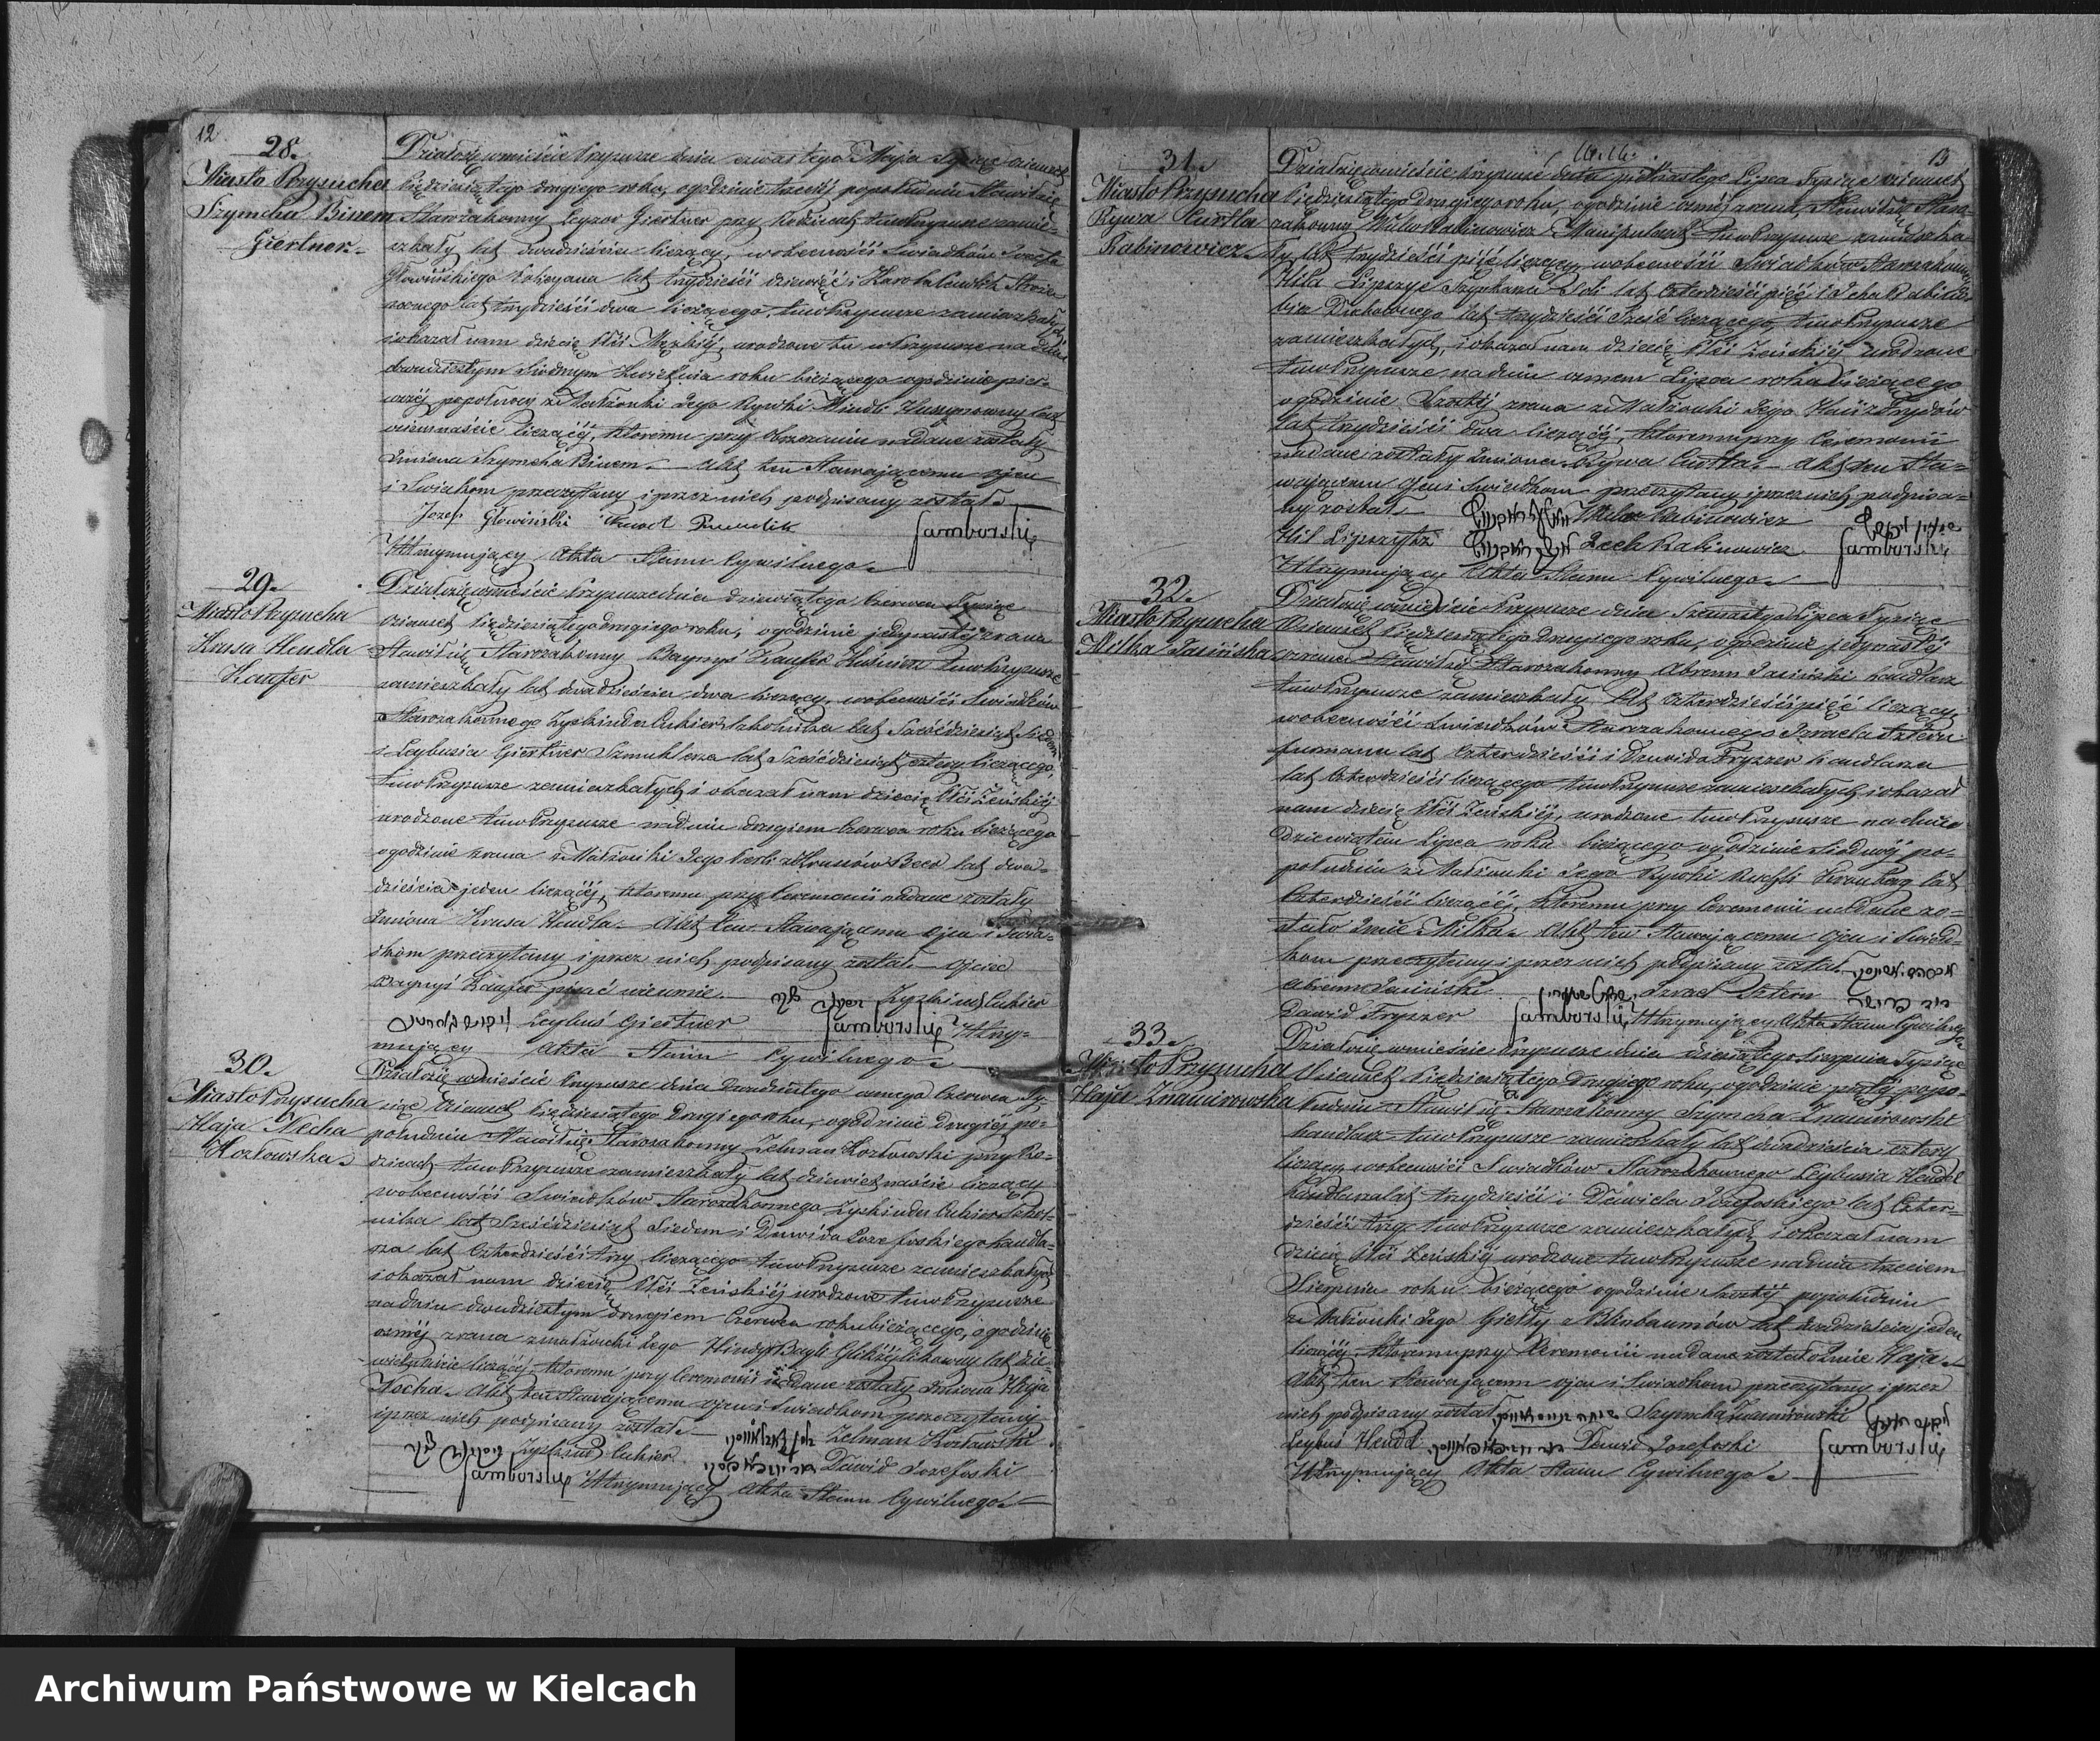 12
28.
Miasto Przysucha
Szymcha Binem
Giertner.
Działo się w mieście Przysusze dnia czwartego Maja Tysiąc ośmset
Pięćdziesiątego drugiego roku, o godzinie trzeciéj popołudniu Stawił się
Starozakonny Leyzor Giertner przy Rodzicach tu w Przysusze zamie-
szkały lat dwadzieścia liczący, w obecności Świadków Józefa
Głowińskiego lat trzydzieści dziewięć i Karola
lat trzydzieści dwa liczącego, tu w Przysusze zamieszkałych
i okazał nam dziecię Płci Męzkiéj, urodzone tu w Przysusze na dniu
dwudziestym siódmym Kwietnia roku bieżącego o godzinie pier-
wszéj popołudniu z Małżonki Jego Rywki Mindli lat
ośmnaście liczącéj, któremu przy Obrzezaniu nadane zostały
Imiona Szymcha Binem. Akt ten Stawającemu Ojcu
i Świadkom przeczytany i przez nich podpisany został.
Jozef Głowiński Samborski
Utrzymujący Akta Stanu Cywilnego.
29.
Miasto Przysucha
Krusa Hendla
Kaufer
Działo się w mieście Przysusze dnia dziewiątego Czerwca Tysiąc
ośmset Pięćdziesiątego drugiego roku, o godzinie jedynastéj zrana
Stawił się Starozakonny Berynyś Kaufer Kuśnierz tu w Przysusze
zamieszkały lat dwadzieścia dwa liczący, w obecności Świadków
Starozakonnego Zyskinda Cukier Szkolnika lat Sześćdziesiąt Siedm
i Leybusia Giertner Szmuklerza lat Sześćdziesiąt cztery liczącego,
tu w Przysusze zamieszkałych i okazał nam dziecię Płci Żeńskiéj
urodzone tu w Przysusze na dniu drugiem Czerwca roku bieżącego
o godzinie zrana z Małżonki Jego Perli z lat dwa-
dzieścia jeden liczącéj, któremu przy Ceremonii nadane zostały
Imiona Krusa Hendla. Akt ten Stawającemu Ojcu i Świa-
dkom przeczytany i przez nich podpisany został. Ojciec
Kaufer pisać nieumie. Zyskind Cukier
Leybuś Giertner Samborski Utrzy-
mujący Akta Stanu Cywilnego.
30.
Miasto Przysucha
Haja Necha
Kozłowska
Działo się w mieście Przysusze dnia dwudziestego ósmego Czerwca Ty-
siąc Ośmset Pięćdziesiątego Drugiego roku, o godzinie Drugiéj po-
południu Stawił się Starozakonny Zelman Kozłowski przy Ro-
dzicach tu w Przysusze zamieszkały lat dziewietnaście liczący
w obecności Świadków Starozakonnego Zyskinda Cukier Szkol-
nika lat Sześćdziesiąt Siedem i Dawida Jozefoskiego handla-
rza lat Czterdzieści trzy liczącego tu w Przysusze zamieszkałych
i okazał nam dziecię Płci Żeńskiéj urodzone tu w Przysusze
na dniu dwudziestym drugiem Czerwca roku bieżącego, o godzinie
ósméj zrana z małżonki Jego Hindy Bayli lat dzie-
wietnaście liczącéj któremu przy Ceremonii nadane zostały Imiona Haja
Necha. Akt ten Stawającemu Ojcu i Świadkom przeczytany
i przez nich podpisany został. Zelman Kozłowski
Zyskind Cukier Dawid Jozefoski
Samborski Utrzymujący Akta Stanu Cywilnego.
13
31.
Miasto Przysucha
Rywa Curtla
Rabinowicz
Działo się w mieście Przysusze dnia piętnastego Lipca Tysiąc ośmset
Pięćdziesiątego Drugiego roku, o godzinie ósméj zrana, Stawił się Staro-
zakonny Rabinowicz tu w Przysusze zamieszka-
ły lat trzydzieści pięć liczący, w obecności Świadków Starozakonnego
Hila Lipszyc Szynkarza Soli lat Czterdzieści pięć i Lecha Rabino-
wicz Duchownego lat trzydzieści Sześć liczącego, tu w Przysusze
zamieszkałych, i okazał nam dziecię Płci Żeńskiéj urodzone
tu w Przysusze na dniu ósmem Lipca roku bieżącego
o godzinie Szóstéj zrana z Małżonki Jego
lat trzydzieści dwa liczącéj, któremu przy Ceremonii
nadane zostały Imiona Rywa Curtla. Akt ten Sta-
wającemu Ojcu i Świadkom przeczytany i przez nich podpisa-
ny został. Rabinowicz
Hil Lipszytz Lech Rabinowicz. Samborski
Utrzymujący Akta Stanu Cywilnego.
32.
Miasto Przysucha
Milka Jasińska
Działo się w mieście Przysusze dnia Lipca Tysiąc
Ośmset Pięćdziesiątego Drugiego roku, o godzinie jedynastéj
zrana Stawił się Starozakonny Abram Jasiński handlarz
tu w Przysusze zamieszkały, lat Czterdzieści pięć liczący
w obecności Świadków Starozakonnego Izraela Sztern
furmana lat Czterdzieści i Dawida Fryszer handlarza
lat Czterdzieści liczącego tu w Przysusze zamieszkałych, i okazał
nam dziecię Płci Żeńskiéj, urodzone tu w Przysusze na dniu
Dziewiątem Lipca roku bieżącego o godzinie Siódméj po-
południu z Małżonki Jego Rywki lat
Czterdzieści liczącéj, któremu przy Ceremonii nadane zo-
stało Imie Milka. Akt ten Stawającemu Ojcu i Świad-
kom przeczytany i przez nich podpisany został.
Abram Jasiński. Izrael Sztern
Dawid Fryszer Samborski Utrzymujący Akta Stanu Cywilnego
33.
Miasto Przysucha
Haja Znamirowska
Działo się w mieście Przysusze dnia dziesiątego Sierpnia Tysiąc
Ośmset Pięćdziesiątego Drugiego roku, o godzinie piątéj popo-
łudniu Stawił się Starozakonny Szymcha Znamirowski
handlarz tu w Przysusze zamieszkały lat dwadzieścia cztery
liczący w obecności Świadków Starozakonnego Leybusia Hendel
handlarza lat trzydzieści i Dawida Jozefoskiego lat Czter-
dzieści trzy tu w Przysusze zamieszkałych i okazał nam
dziecię Płci Żeńskiéj urodzone tu w Przysusze na dniu trzeciem
Sierpnia roku bieżącego o godzinie Szóstéj popołudniu
z Małżonki Jego Gietly z Blinbaumów lat dwadzieścia jeden
liczącéj, któremu przy Ceremonii nadane zostało Imie Haja.
Akt ten Stawającemu Ojcu i Świadkom przeczytany i przez
nich podpisany został Szymcha Znamirowski
Leybuś Hendel Dawid Jozefoski Samborski
Utrzymujący Akta Stanu Cywilnego.
Archiwum Państwowe w Kielcach